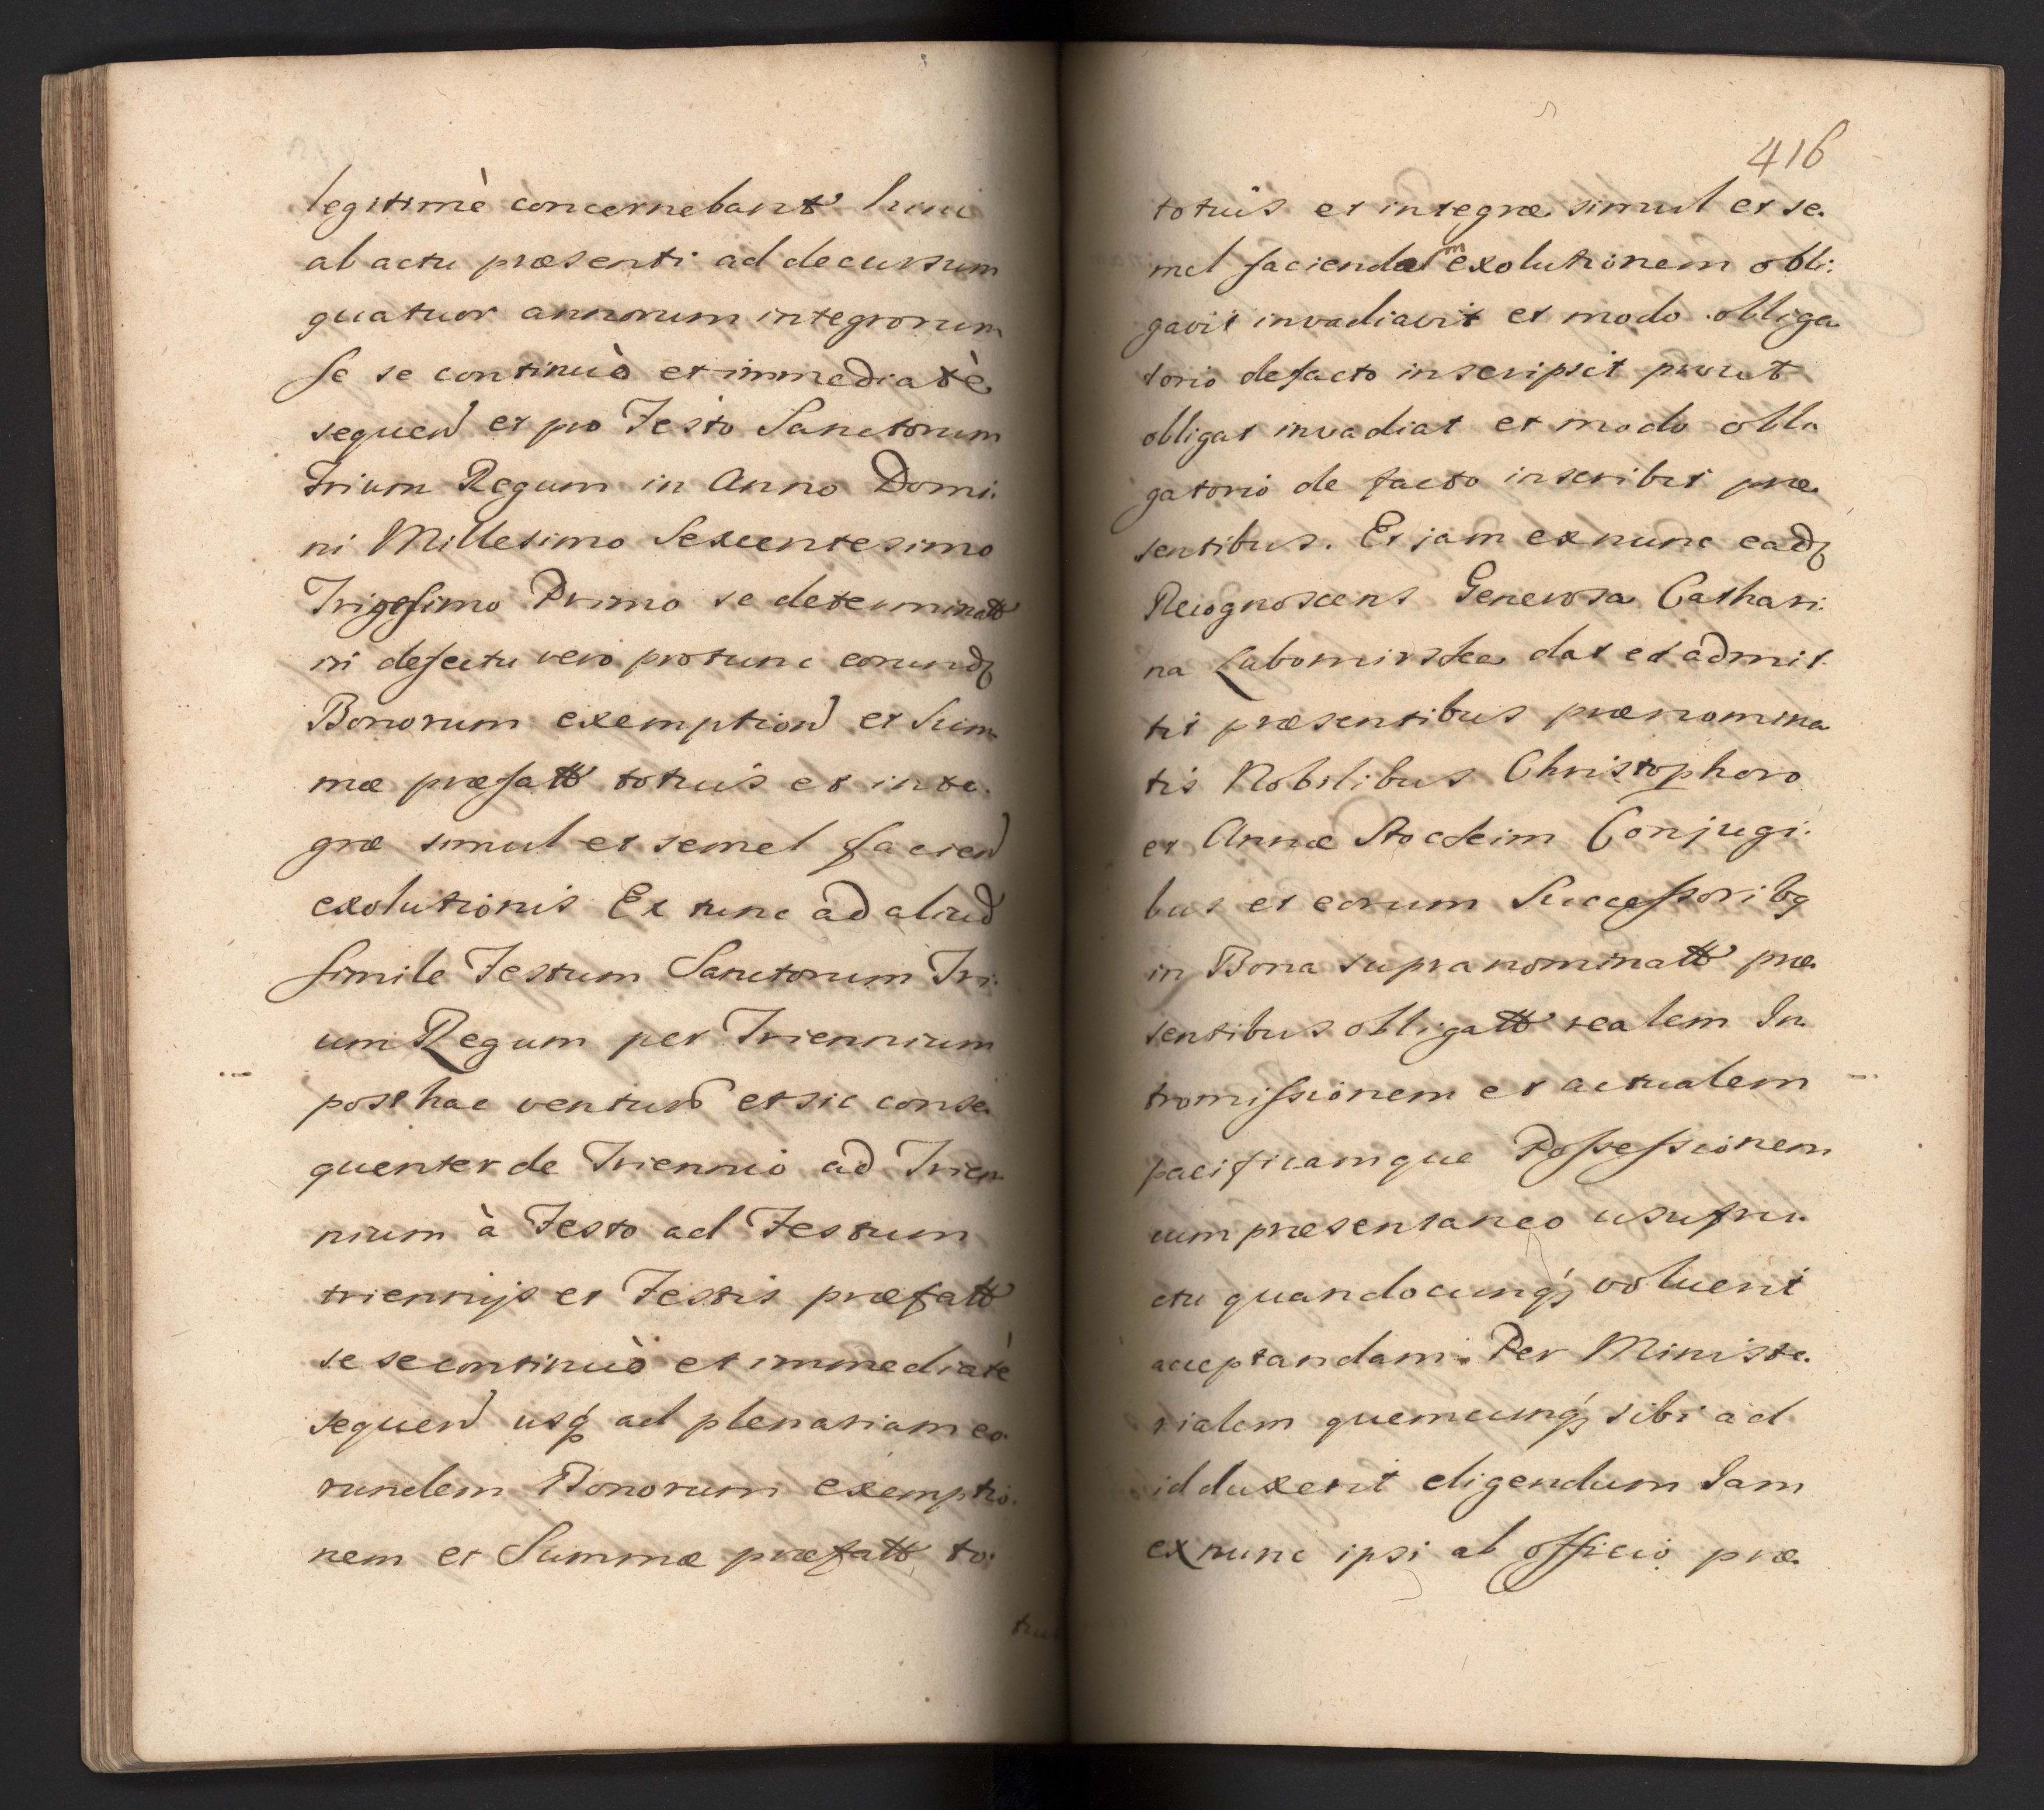 legitimè concernebant hinc
ab actu præsenti ad decursum
quatuor annorum integrorum
se se continuò et immediatè
sequen et pro Festo Sanctorum
Trium Regum in Anno Domi:
ni Millesimo Sexcentesimo
Trigesimo Primo se determinatt
in defectu vero protunc eorundq
Bonorum exemption et Sum
mæ præfatt totius et inte.
græ simul et semel facien
exolutionis Ex tunc ad aliud
simile Festum Sanctorum Tri:
um Regum per Triennium
post hac ventur et sic conse.
quenter de Triennio ad Trien
nium à Festo ad Festum
triennijs et Festis præfatt
se se continuò et immediatè
sequen usq ad plenariam eo.
rundem Bonorum exemptio.
nem et Summæ præfatt to:
416
totius et integræ simul et se.
mel faciendam exolutionem obli:
gavit invadiavit et modo obliga
torio defacto inscripsit prout
obligat invadiat et modo obli
gatorio de facto inscribit præ.
sentibus. Et jam exnunc eadq
Recognoscens Generosa Cathari:
na Lubomirska dat et admit.
tit præsentibus prænomina
tis Nobilibus Christophoro
et Annæ Stockeim Conjugi:
bus et eorum Successoribq
in Bona supranominatt præ.
sentibus obligatt realem In.
tromissionem et actualem
pacificamque Possessionem
cum præsentaneo usufru.
ctu quandocunq voluerit
acceptandam. Per Ministe.
rialem quemcunq sibi ad
id duxerit eligendum Jam
ex nunc ipsi ab officio præ.